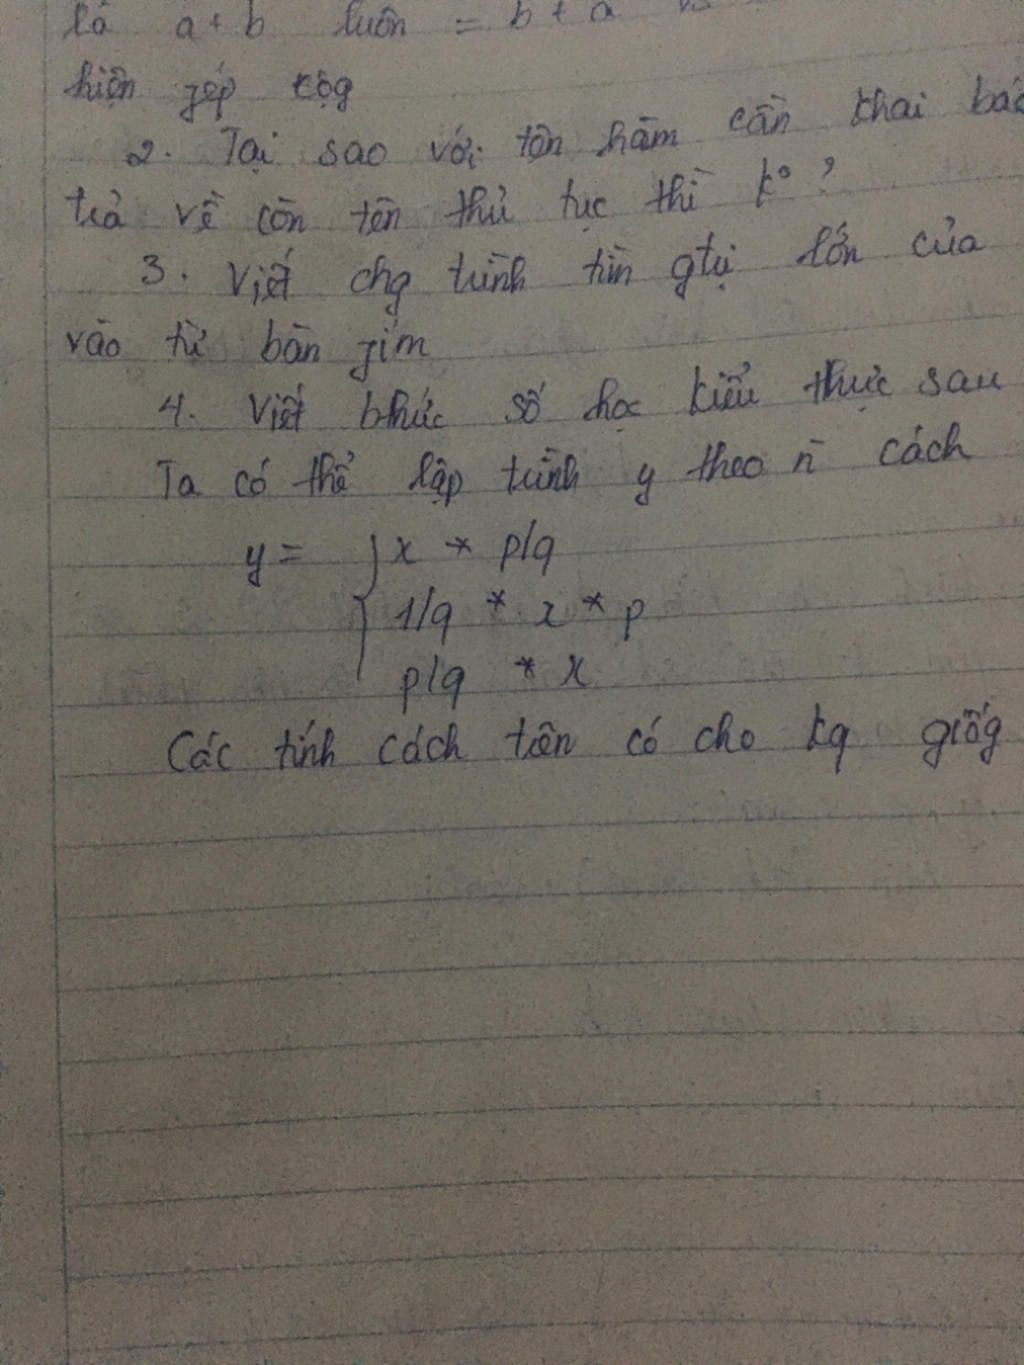 là a + b luôn = b + a
hiện zép cộg
2. Tại sao với tên hàm cần khai báo
trả về còn tên thủ tục thì k° ?
3. Viết chg trình tìm gtrị lớn của
vào từ bàn zím
4. Viết bthức số học kiểu thực sau
Ta có thể lập trình y theo n̄ cách
y = { x * p/q
1/q * x * p
p/q * x
Các tính cách trên có cho kq giốg